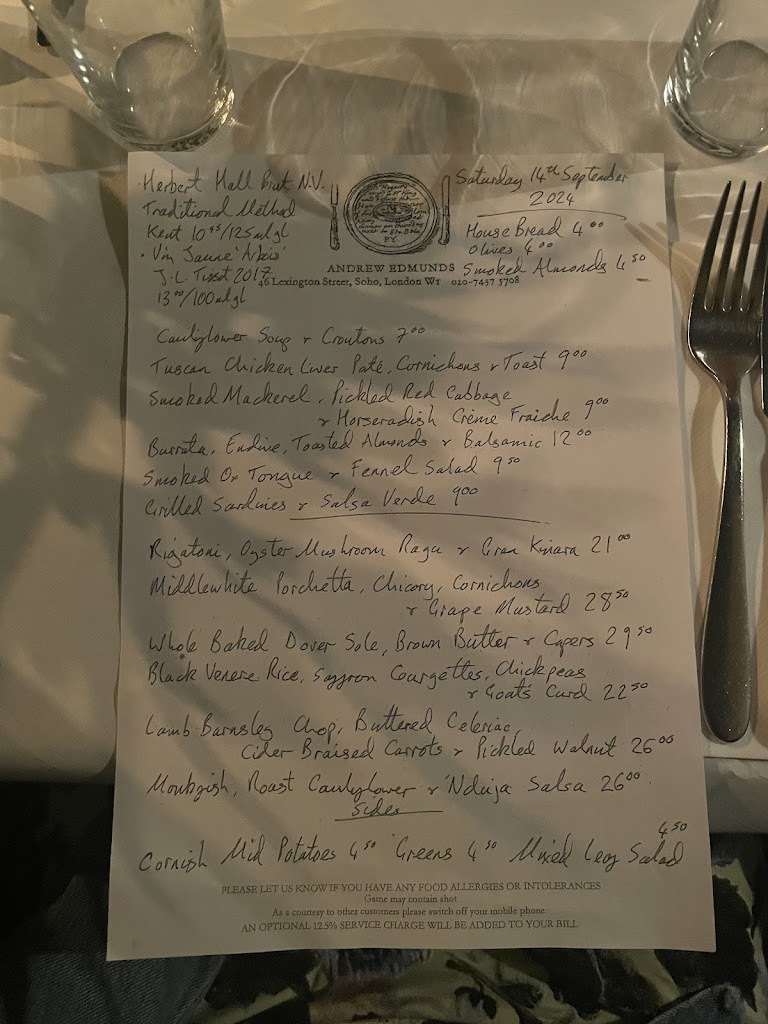 Herbert Hall Brut N.V.
Traditional Method
Kent 10⁹⁵/125ml gl
• Vin Jaune 'Arbois'
J.L. Tissot 2017
13⁰⁰/100ml gl
BY
ANDREW EDMUNDS
46 Lexington Street, Soho, London W1 020-7437 5708
Saturday 14th September
2024
House Bread 4⁰⁰
Olives 4⁰⁰
Smoked Almonds 4⁵⁰
Cauliflower Soup & Croutons 7⁰⁰
Tuscan Chicken Liver Paté, Cornichons & Toast 9⁰⁰
Smoked Mackerel, Pickled Red Cabbage
& Horseradish Crème Fraiche 9⁰⁰
Burrata, Endive, Toasted Almonds & Balsamic 12⁰⁰
Smoked Ox Tongue & Fennel Salad 9⁵⁰
Grilled Sardines & Salsa Verde 9⁰⁰
Rigatoni, Oyster Mushroom Ragu & Gran Kinara 21⁰⁰
Middlewhite Porchetta, Chicory, Cornichons
& Grape Mustard 28⁵⁰
Whole Baked Dover Sole, Brown Butter & Capers 29⁵⁰
Black Venere Rice, Saffron Courgettes, Chickpeas
& Goats Curd 22⁵⁰
Lamb Barnsley Chop, Buttered Celeriac,
Cider Braised Carrots & Pickled Walnut 26⁰⁰
Monkfish, Roast Cauliflower & 'Nduja Salsa 26⁰⁰
Sides
Cornish Mid Potatoes 4⁵⁰ Greens 4⁵⁰ Mixed Leaf Salad 4⁵⁰
PLEASE LET US KNOW IF YOU HAVE ANY FOOD ALLERGIES OR INTOLERANCES
Game may contain shot
As a courtesy to other customers please switch off your mobile phone
AN OPTIONAL 12.5% SERVICE CHARGE WILL BE ADDED TO YOUR BILL